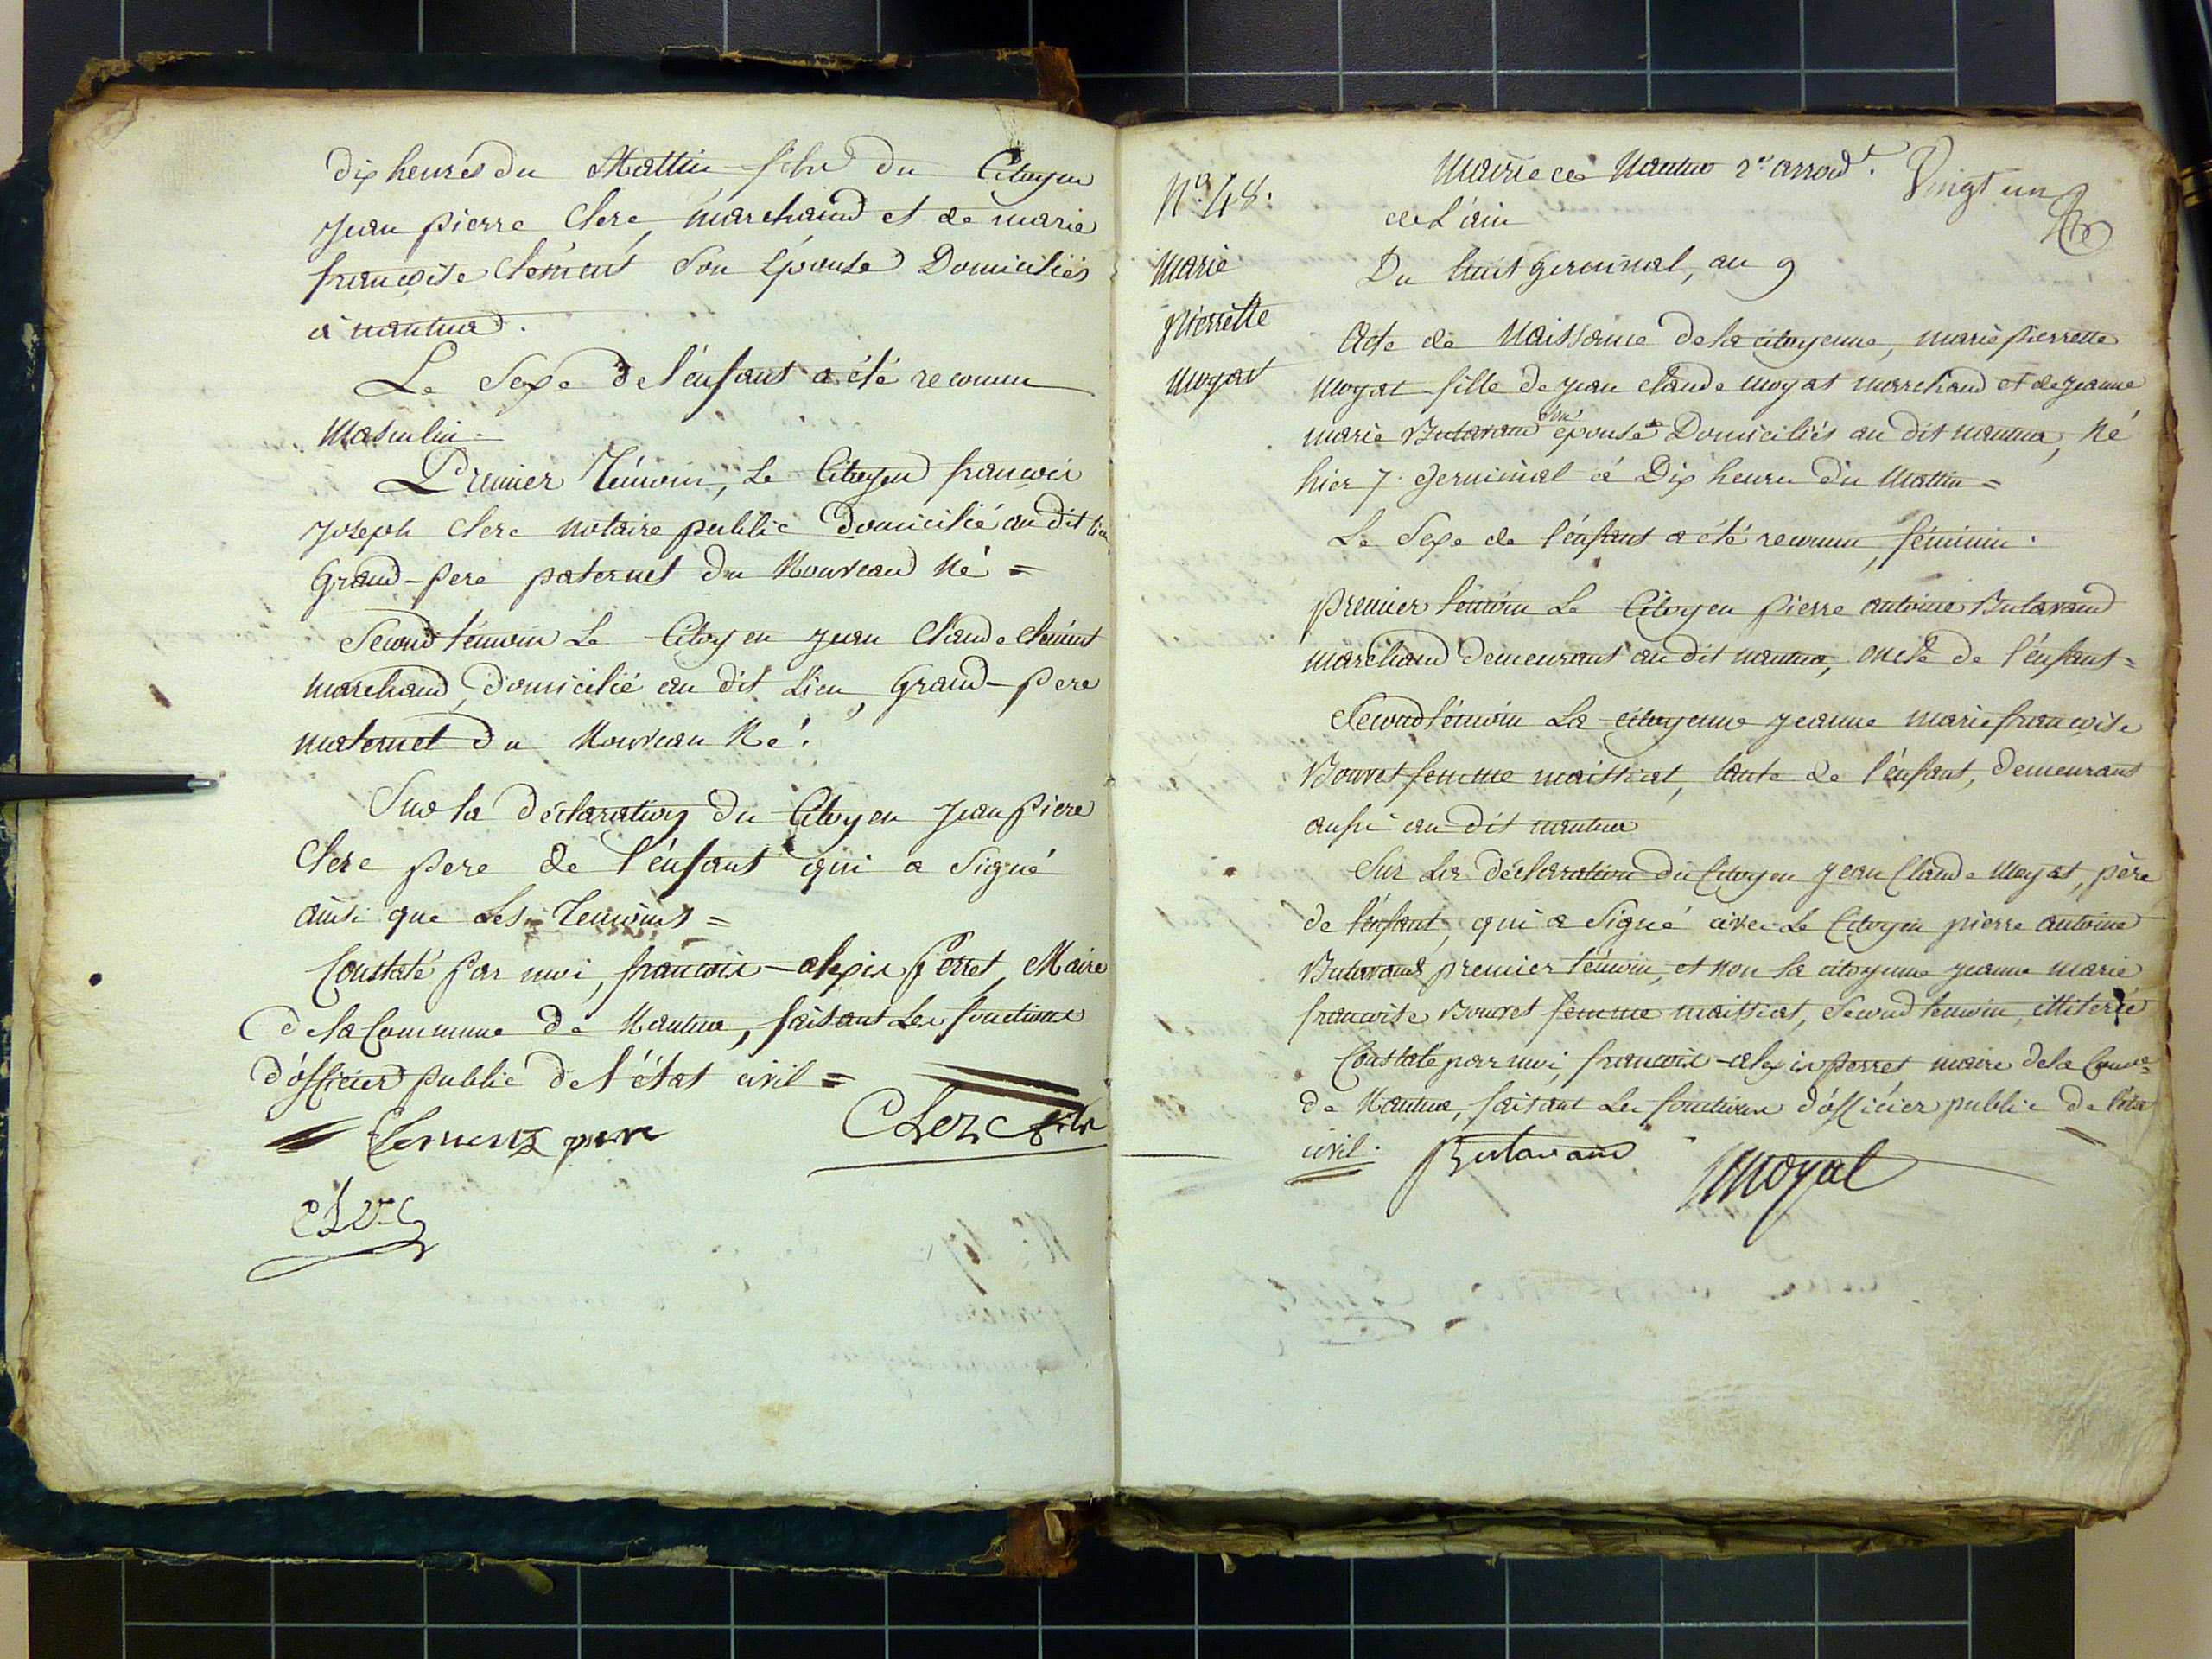 dix heures du Mattin fils du Citoyen
Jean pierre Clerc, marchand et de marie
françoise Clément Son Épouse Domiciliés
à nantua.
Le Sexe de l'énfant a été reconnu
Masculin.
Premier Témoin, Le Citoyen françois
Joseph Clerc notaire public domicilié au dit lieu
Grand-pere paternel du Nouveau Né =
Second témoin Le Citoyen Jean Claude Clément
marchand, domicilié au dit Lieu, Grand-pere
maternel du Nouveau Né.
Sur la déclaration du Citoyen Jean piere
Clerc pere de l'énfant qui a Signé
ainsi que Les Temoins =
Constaté par moi, françois-alexis perret, Maire
de la Commune de Nantua, faisant Les fonctions
d'officier public de l'état civil =
Clement pere Clerc fils
Clerc
Mairie de Nantua 2e arrond.t Vingt un
N.o 48. de L'ain
Du huit Germinal, an 9
Marie
pierrette
moyat
Acte de Naissance de la citoyenne, marie pierrette
moyat fille de jean claude moyat marchand et de jeanne
marie Butavand son épouse Domiciliés au dit nantua, Né
hier 7 Germinal à Dix heures du Mattin =
Le Sexe de l'énfant a été reconnu, féminin.
premier témoin Le Citoyen pierre antoine Butavand
marchand demeurant au dit nantua, oncle de l'énfant =
Second témoin La citoyenne jeanne marie françoise
Bouvet femme maissiat, tante de l'énfant, demeurant
aussi au dit nantua
Sur La déclaration du Citoyen Jean Claude Moyat, père
de l'énfant, qui a Signé avec Le Citoyen pierre antoine
Butavand premier témoin, et non la citoyenne jeanne marie
françoise Bouvet femme maissiat, Second temoin, illiterée
Constaté par moi, françois-alexis perret, maire de la Comne
de Nantua, faisant Les fonctions d'officier public de l'état
civil. Butavand moyat